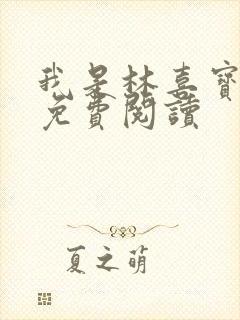 我是林喜寶
免費閱讀
夏之萌